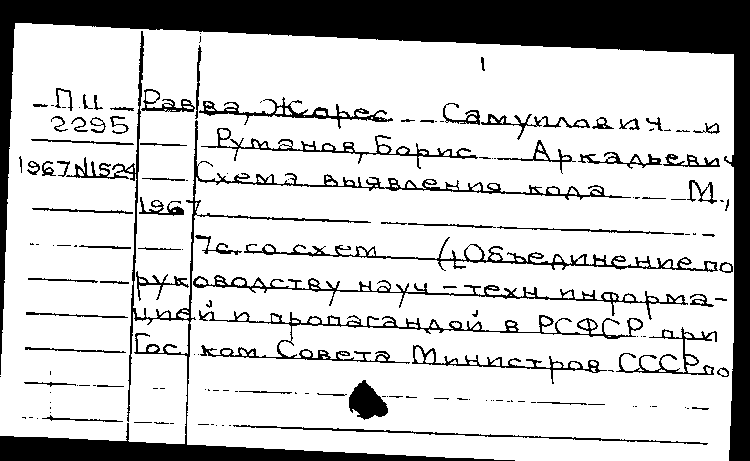 1
П11 Равва, Жорес Самуилович и
2295 Руманов, Борис Аркадьевич
1967N1524 Схема выявления кода М.,
1967
7с. со схем (Объединение по
руководству науч-техн. информа-
цией и пропагандой в РСФСР при
Гос. ком. Совета Министров СССР по